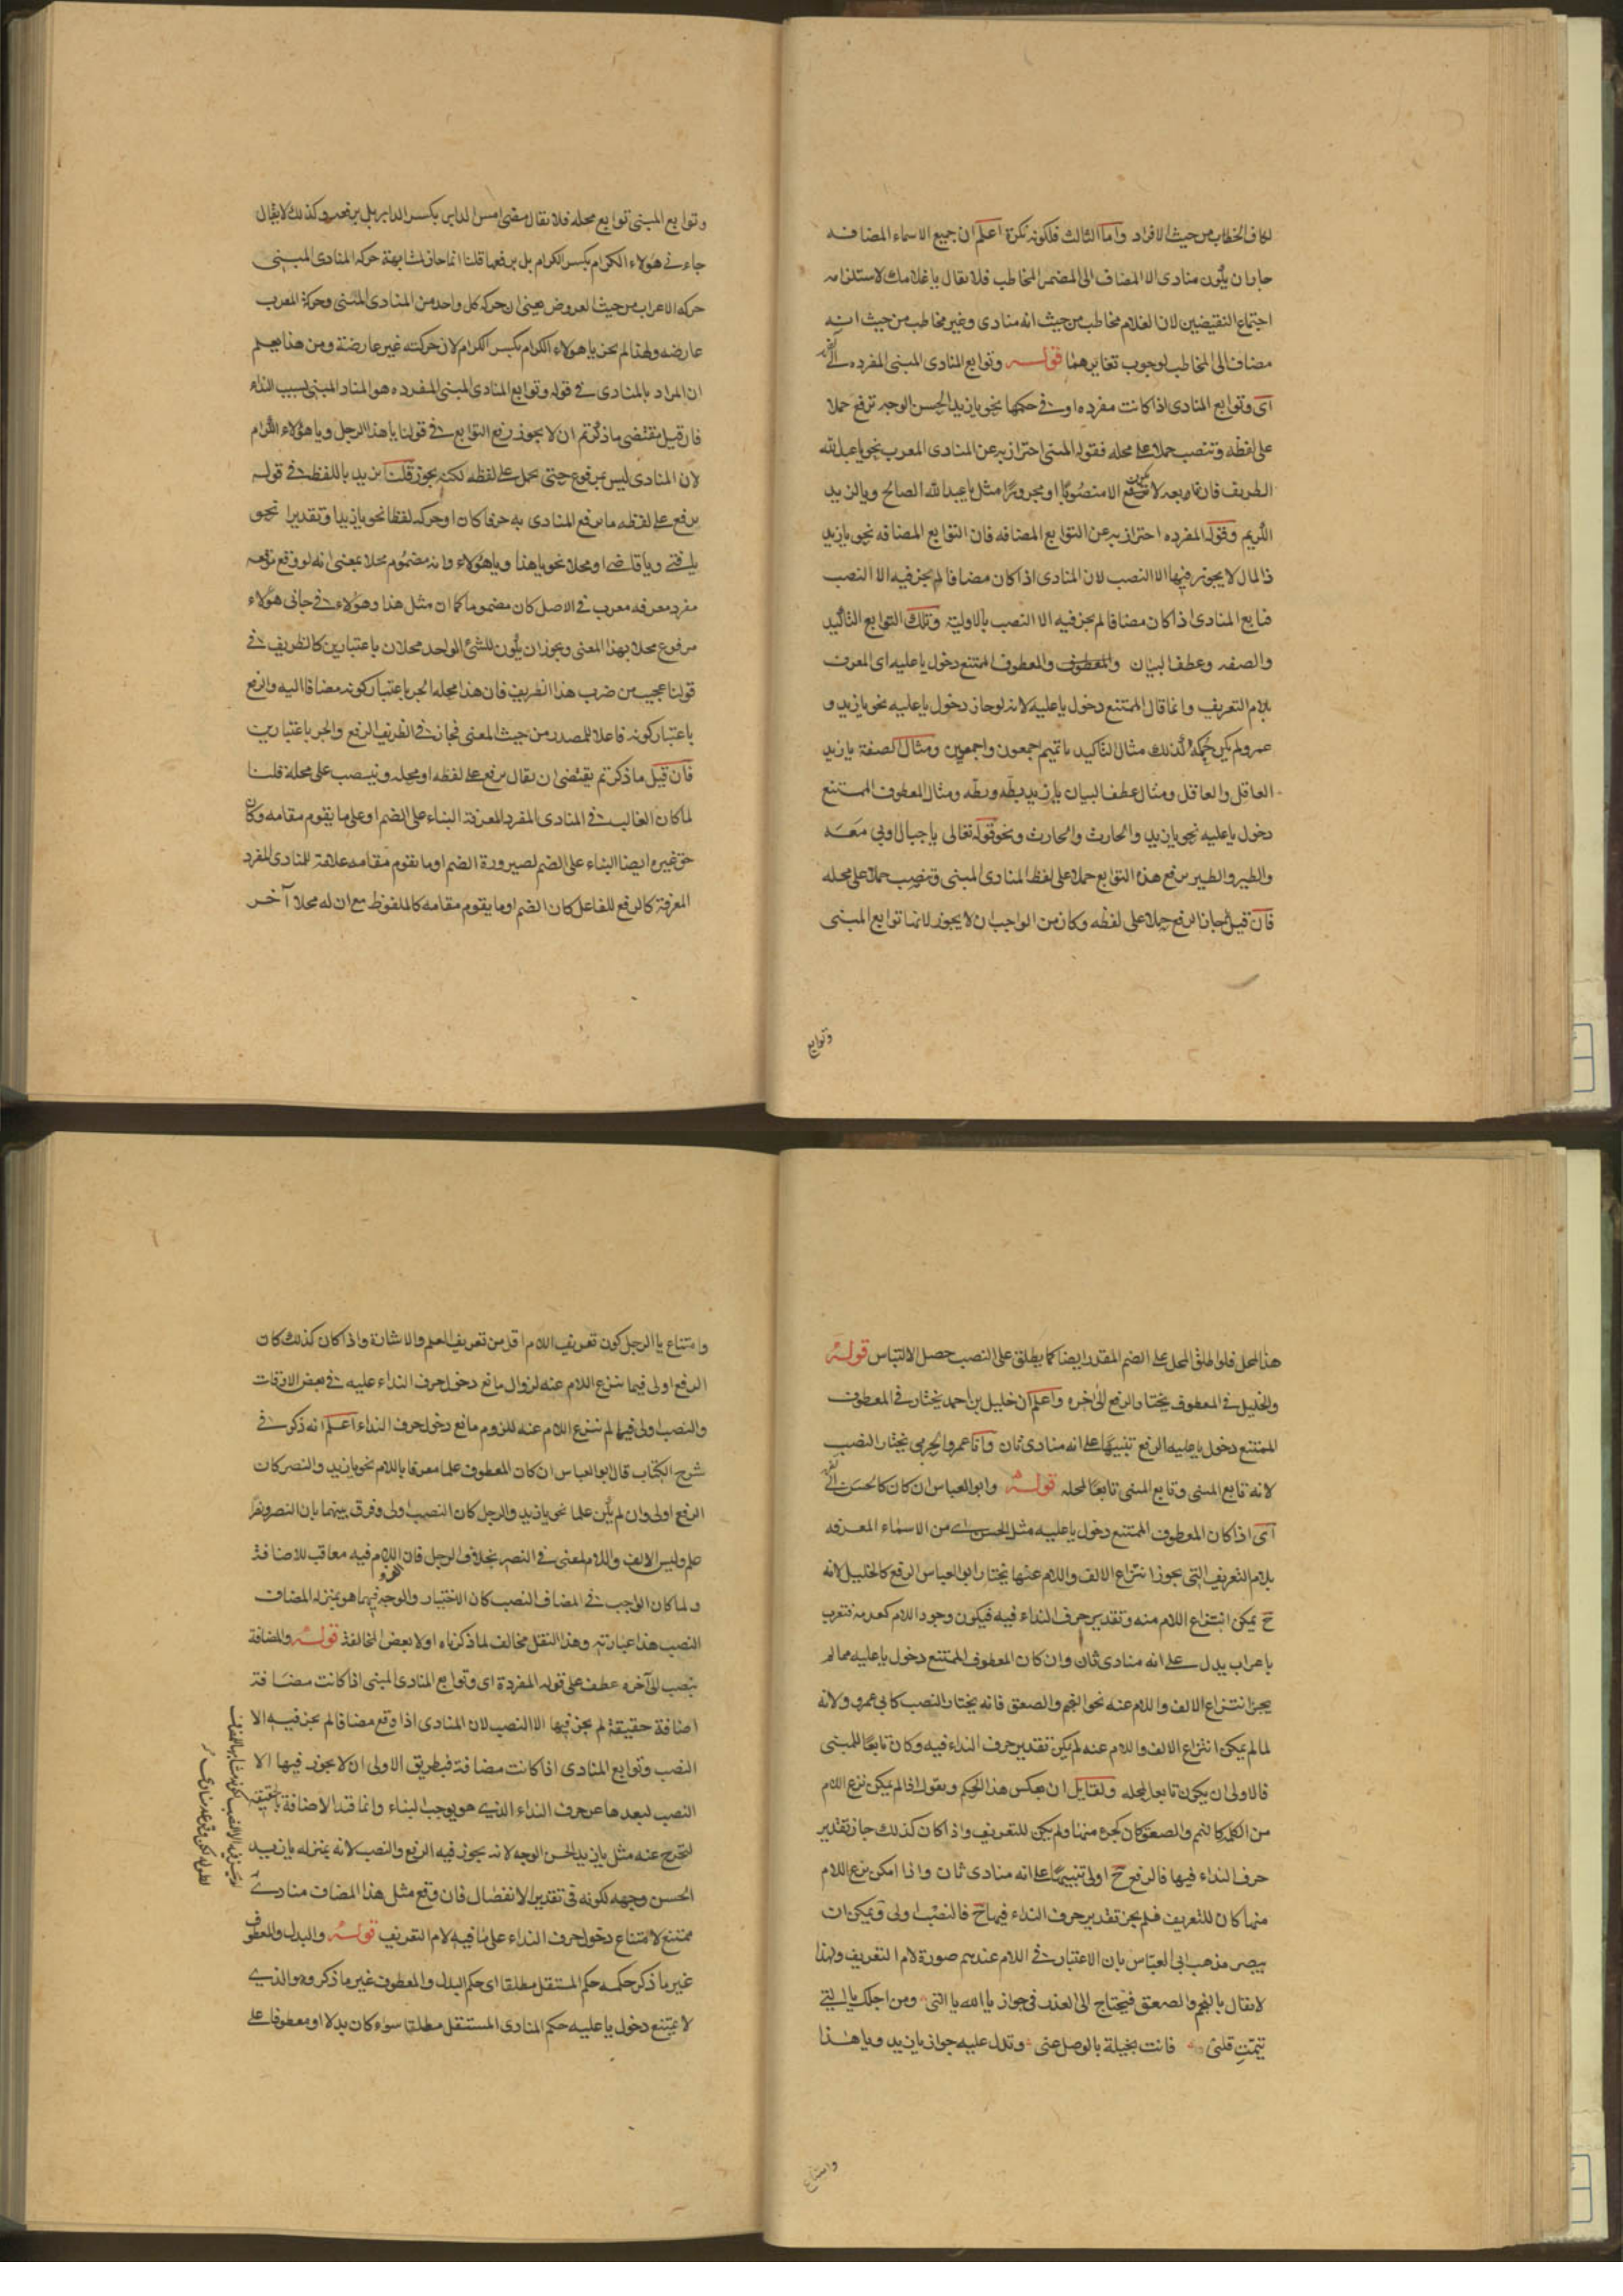 لكاف الخطاب من حيث الافراد واما الثالث فلكونه نكرة اعلم ان جميع الاسماء المضافه
جاز ان يكون منادى الا المضاف الى المضمر المخاطب فلا يقال يا غلامك لاستلزامه
اجتماع النقيضين لان الغلام مخاطب من حيث انه منادى وغير مخاطب من حيث انه
مضاف الى المخاطب لوجوب تغايرهما قوله وتوابع المنادى المبنى المفرده الى آخره
اى وتوابع المنادى اذا كانت مفرده او فى حكمها نحو يا زيد الحسن الوجه ترفع حملا
على لفظه وتنصب حملا على محله فقوله المبنى احتراز به عن المنادى المعرب نحو يا عبد الله
الظريف فان تابعه لا يكون الا منصوبا او مجرورا مثل يا عبد الله الصالح ويا لزيد
الكريم وقوله المفرده احتراز به عن التوابع المضافه فان التوابع المضافه نحو يا زيد
ذا المال لا يجوز فيها الا النصب لان المنادى اذا كان مضافا لم يجز فيه الا النصب
فتابع المنادى اذا كان مضافا لم يجز فيه الا النصب بالاولية وتلك التوابع التاكيد
والصفه وعطف البيان والمعطوف الممتنع دخول يا عليه اى المعرف
بلام التعريف وانما قال الممتنع دخول يا عليه لانه لو جاز دخول يا عليه نحو يا زيد و
عمرو لم يكن حكمه كذلك مثال التاكيد يا تميم اجمعون واجمعين ومثال الصفة يا زيد
العاقل والعاقل ومثال عطف البيان يا زيد بطّه وبطّه ومثال المعطوف الممتنع
دخول يا عليه نحو يا زيد والحارث والحارث ونحو قوله تعالى يا جبال اوبى معه
والطير والطير يرفع هذه التوابع حملا على لفظ المنادى المبنى وتنصب حملا على محله
فان قيل لم جاز الرفع حملا على لفظه وكان من الواجب ان لا يجوز لانها توابع المبنى
وتوابع
وتوابع المبنى توابع محله فلا يقال مضى امس الدابر بكسر الدابر بل برفعه وكذلك لا يقال
جاءنى هؤلاء الكرام بكسر الكرام بل برفعها قلنا انما جاز لمشابهة حركة المنادى المبنى
حركة الاعراب من حيث العروض يعنى ان حركة كل واحد من المنادى المبنى وحركة المعرب
عارضه ولهذا لم يجز يا هؤلاء الكرام بكسر الكرام لان حركته غير عارضة ومن هذا يعلم
ان المراد بالمنادى فى قوله وتوابع المنادى المبنى المفرده هو المناد المبنى بسبب النداء
فان قيل مقتضى ما ذكرتم ان لا يجوز رفع التوابع فى قولنا يا هذا الرجل ويا هؤلاء الكرام
لان المنادى ليس بمرفوع حتى يحمل على لفظه لكنه يجوز قلنا نريد باللفظ فى قوله
يرفع على لفظه ما يرفع المنادى به حرفا كان او حركه لفظا نحو يا زيد او تقديرا نحو
يا فتى ويا قاضى او محلا نحو يا هذا ويا هؤلاء وانه مضموم محلا بمعنى انه لو وقع موقعه
مفرد معرفه معرب فى الاصل كان مضموما كما ان مثل هذا وهؤلاء فى جاءنى هؤلاء
مرفوع محلا بهذا المعنى ويجوز ان يكون للشئ الواحد محلان باعتبارين كالظريف فى
قولنا عجبت من ضرب هذا الظريف فان هذا محله الجر باعتبار كونه مضافا اليه والرفع
باعتبار كونه فاعلا للمصدر من حيث المعنى فجاز فى الظريف الرفع والجر باعتبارين
فان قيل ما ذكرتم يقتضى ان يقال يرفع على لفظه او محله وينصب على محله قلنا
لما كان الغالب فى المنادى المفرد المعرفة البناء على الضم او على ما يقوم مقامه وكان
حق غيره ايضا البناء على الضم لصيرورة الضم او ما يقوم مقامه علامة للمنادى المفرد
المعرفة كالرفع للفاعل كان الضم او ما يقوم مقامه كالملفوظ مع ان له محلا آخر
هذا المحل فلو اطلق المحل على الضم المقدر ايضا كما يطلق على النصب حصل الالتباس قوله
والخليل فى المعطوف يختار الرفع الى آخره واعلم ان خليل بن احمد يختار فى المعطوف
الممتنع دخول يا عليه الرفع تنبيها على انه منادى ثان واما عمرو الجرمى يختار النصب
لانه تابع المبنى وتابع المبنى تابعا لمحله قوله وابو العباس ان كان كالحسن الى آخره
اى اذا كان المعطوف الممتنع دخول يا عليه مثل الحسن اى من الاسماء المعرفه
بلام التعريف التى يجوز انتزاع الالف واللام عنها يختار ابو العباس الرفع كالخليل لانه
ح يمكن انتزاع اللام منه وتقدير حرف النداء فيه فيكون وجود اللام كعدمه فتعرب
باعراب يدل على انه منادى ثان وان كان المعطوف الممتنع دخول يا عليه مما لم
يجز انتزاع الالف واللام عنه نحو النجم والصعق فانه يختار النصب كابى عمرو ولانه
لما لم يمكن انتزاع الالف واللام عنه لم يكن تقدير حرف النداء فيه وكان تابعا للمبنى
فالاولى ان يكون تابعا لمحله ولقايل ان يعكس هذا الحكم ويقول اذا لم يمكن نزع اللام
من الكلمة كالنجم والصعق كان كجزء منها ولم يكن للتعريف واذا كان كذلك جاز تقدير
حرف النداء فيها فالرفع ح اولى تنبيها على انه منادى ثان واذا امكن نزع اللام
منها كان للتعريف فلم يجز تقدير حرف النداء فيها ح فالنصب اولى ويمكن ان
ينصر مذهب ابى العباس بان الاعتبار فى اللام عندهم صورة لام التعريف ولهذا
لا يقال يا النجم والصعق فيحتاج الى العذر فى جواز يا الله يا التى ومن اجلك يا التى
تيمت قلبى فانت بخيلة بالوصل عنى ويدل عليه جواز يا زيد ويا هذا
وامتناع
وامتناع يا الرجل كون تعريف اللام اقل من تعريف العلم والاشارة واذا كان كذلك كان
الرفع اولى فيما ينزع اللام عنه لزوال مانع دخول حرف النداء عليه فى بعض الاوقات
والنصب اولى فيما لم ينزع اللام عنه للزوم مانع دخول حرف النداء اعلم انه ذكر فى
شرح الكتاب قال ابو العباس ان كان المعطوف علما معرفا باللام نحو يا زيد والنصر كان
الرفع اولى وان لم يكن علما نحو يا زيد والرجل كان النصب اولى وفرق بينهما بان النصر ونصرا
علم وليس الالف واللام لمعنى فى النصر بخلاف الرجل فان اللام فيه معاقب للاضافة
ولما كان الواجب فى المضاف النصب كان الاختيار والوجه فيما هو بمنزلة المضاف
النصب هذا عبارته وهذا النقل مخالف لما ذكرناه اولا بعض المخالفة قوله والمضافة
تنصب الى آخره عطف على قوله المفردة اى وتوابع المنادى المبنى اذا كانت مضافة
اضافة حقيقة لم يجز فيها الا النصب لان المنادى اذا وقع مضافا لم يجز فيه الا
النصب وتوابع المنادى اذا كانت مضافة فبطريق الاولى ان لا يجوز فيها الا
النصب لبعدها عن حرف النداء الذى هو يوجب البناء وانما قيد الاضافة بالحقيقة
لتخرج عنه مثل يا زيد الحسن الوجه لانه يجوز فيه الرفع والنصب لانه بمنزلة يا زيد
الحسن وجهه لكونه فى تقدير الانفصال فان وقع مثل هذا المضاف منادى
ممتنع لامتناع دخول حرف النداء على ما فيه لام التعريف قوله والبدل والمعطوف
غير ما ذكر حكمه حكم المستقل مطلقا اى حكم البدل والمعطوف غير ما ذكر وهو الذى
لا يمتنع دخول يا عليه حكم المنادى المستقل مطلقا سواء كان بدلا او معطوفا على